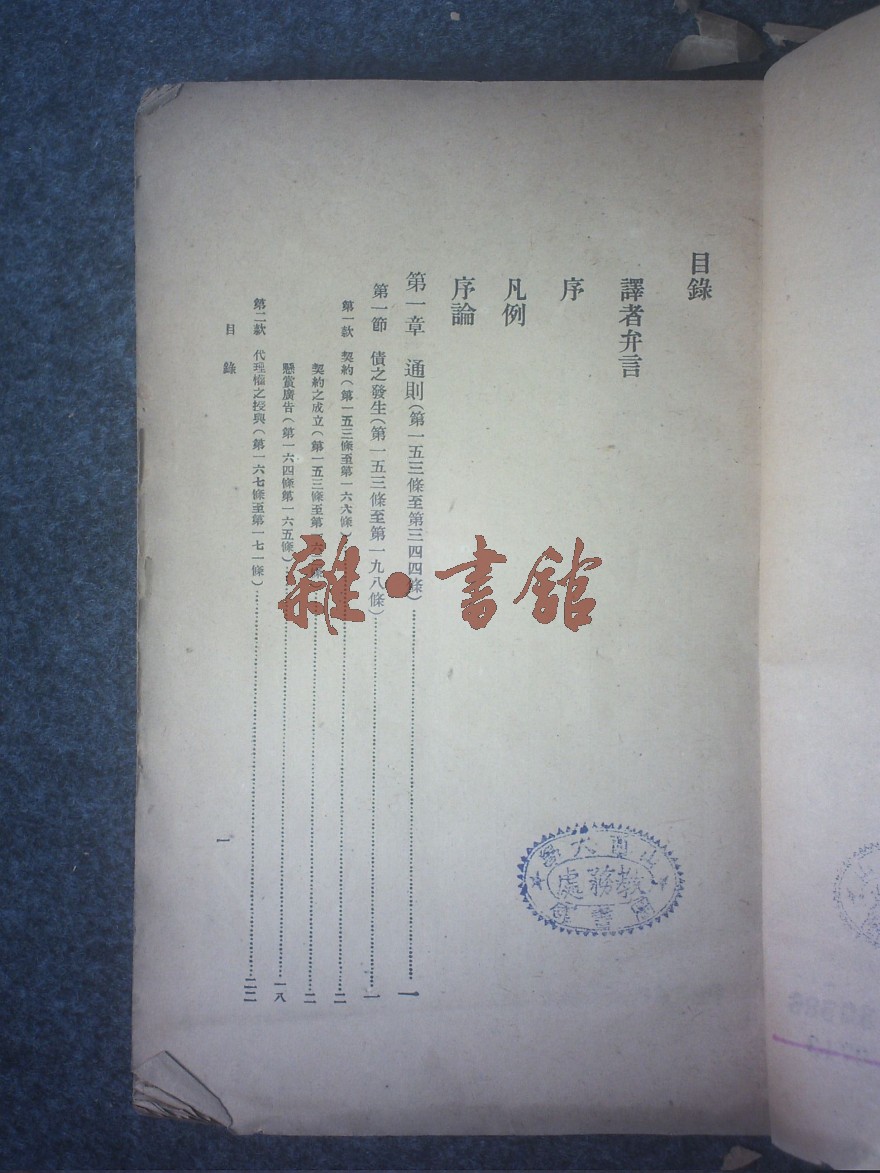 目錄
譯者弁言
序
凡例
序論
第一章 通則(第一五三條至第三四四條)…一
第一節 債之發生(第一五三條至第一九八條)…一
第一款 契約(第一五三條至第一六六條)…二
契約之成立(第一五三條至第一六 條)…二
懸賞廣告(第一六四條第一六五條)…一八
第二款 代理權之授與(第一六七條至第一七一條)…二三
目錄
一
雜·書館
山西大學
教務處
圖書